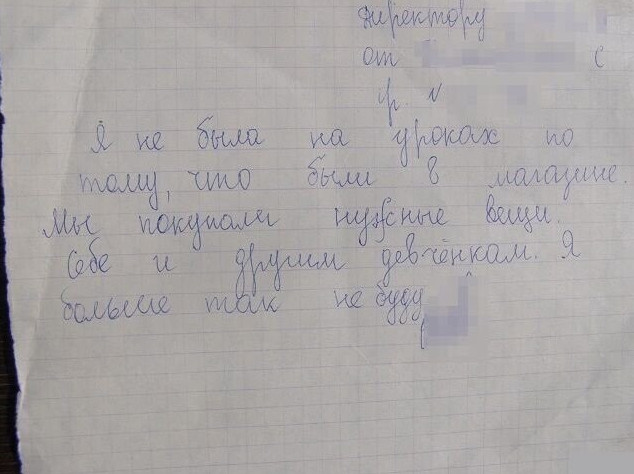 директору
от
Я не была на уроках по
тому, что были в магазине.
Мы покупали нужные вещи.
Себе и другим девчёнкам. Я
больше так не буду